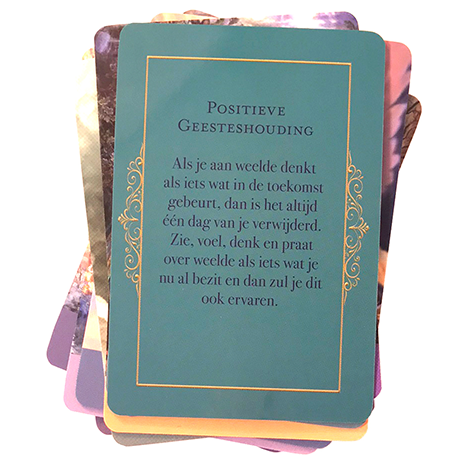 Positieve
Geesteshouding
Als je aan weelde denkt
als iets wat in de toekomst
gebeurt, dan is het altijd
één dag van je verwijderd.
Zie, voel, denk en praat
over weelde als iets wat je
nu al bezit en dan zul je dit
ook ervaren.